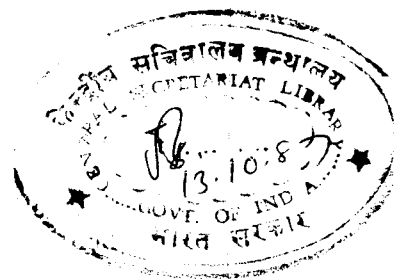 केन्द्रीय सचिवालय ग्रन्थालय
CENTRAL SECRETARIAT LIBRARY
13.10.87
GOVT. OF INDIA
भारत सरकार